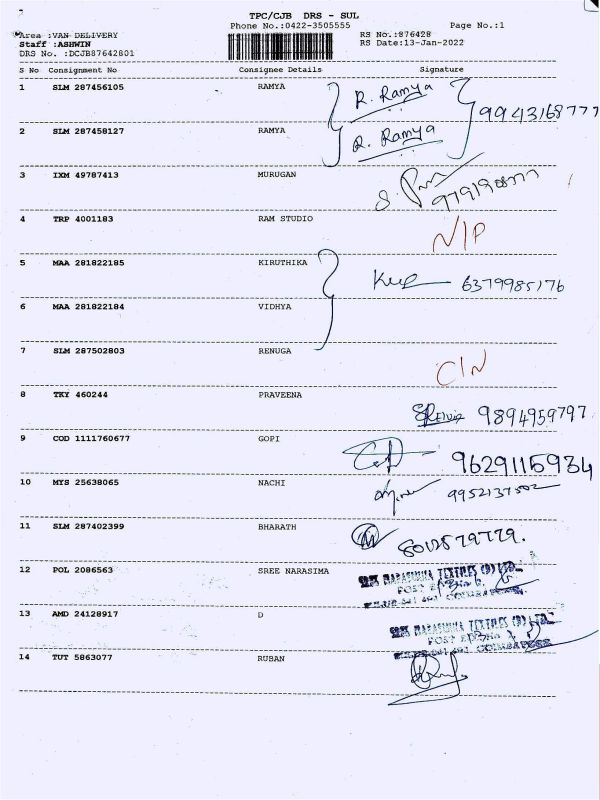 TPC/CJB DRS - SUL
Phone No.:0422-3505555 Page No.:1
Area :VAN DELIVERY RS No.:876428
Staff :ASHWIN RS Date:13-Jan-2022
DRS No. :DCJB87642801
S No Consignment No Consignee Details Signature
1 SLM 287456105 RAMYA R. Ramya 9943168777
2 SLM 287458127 RAMYA R. Ramya
3 IXM 49787413 MURUGAN
4 TRP 4001183 RAM STUDIO N/P
5 MAA 281822185 KIRUTHIKA 6379985176
6 MAA 281822184 VIDHYA
7 SLM 287502803 RENUGA C/N
8 TKY 460244 PRAVEENA 9894959797
9 COD 1111760677 GOPI 9629115934
10 MYS 25638065 NACHI 9952137502
11 SLM 287402399 BHARATH
12 POL 2086563 SREE NARASIMA
13 AMD 24128917 D
14 TUT 5863077 RUBAN